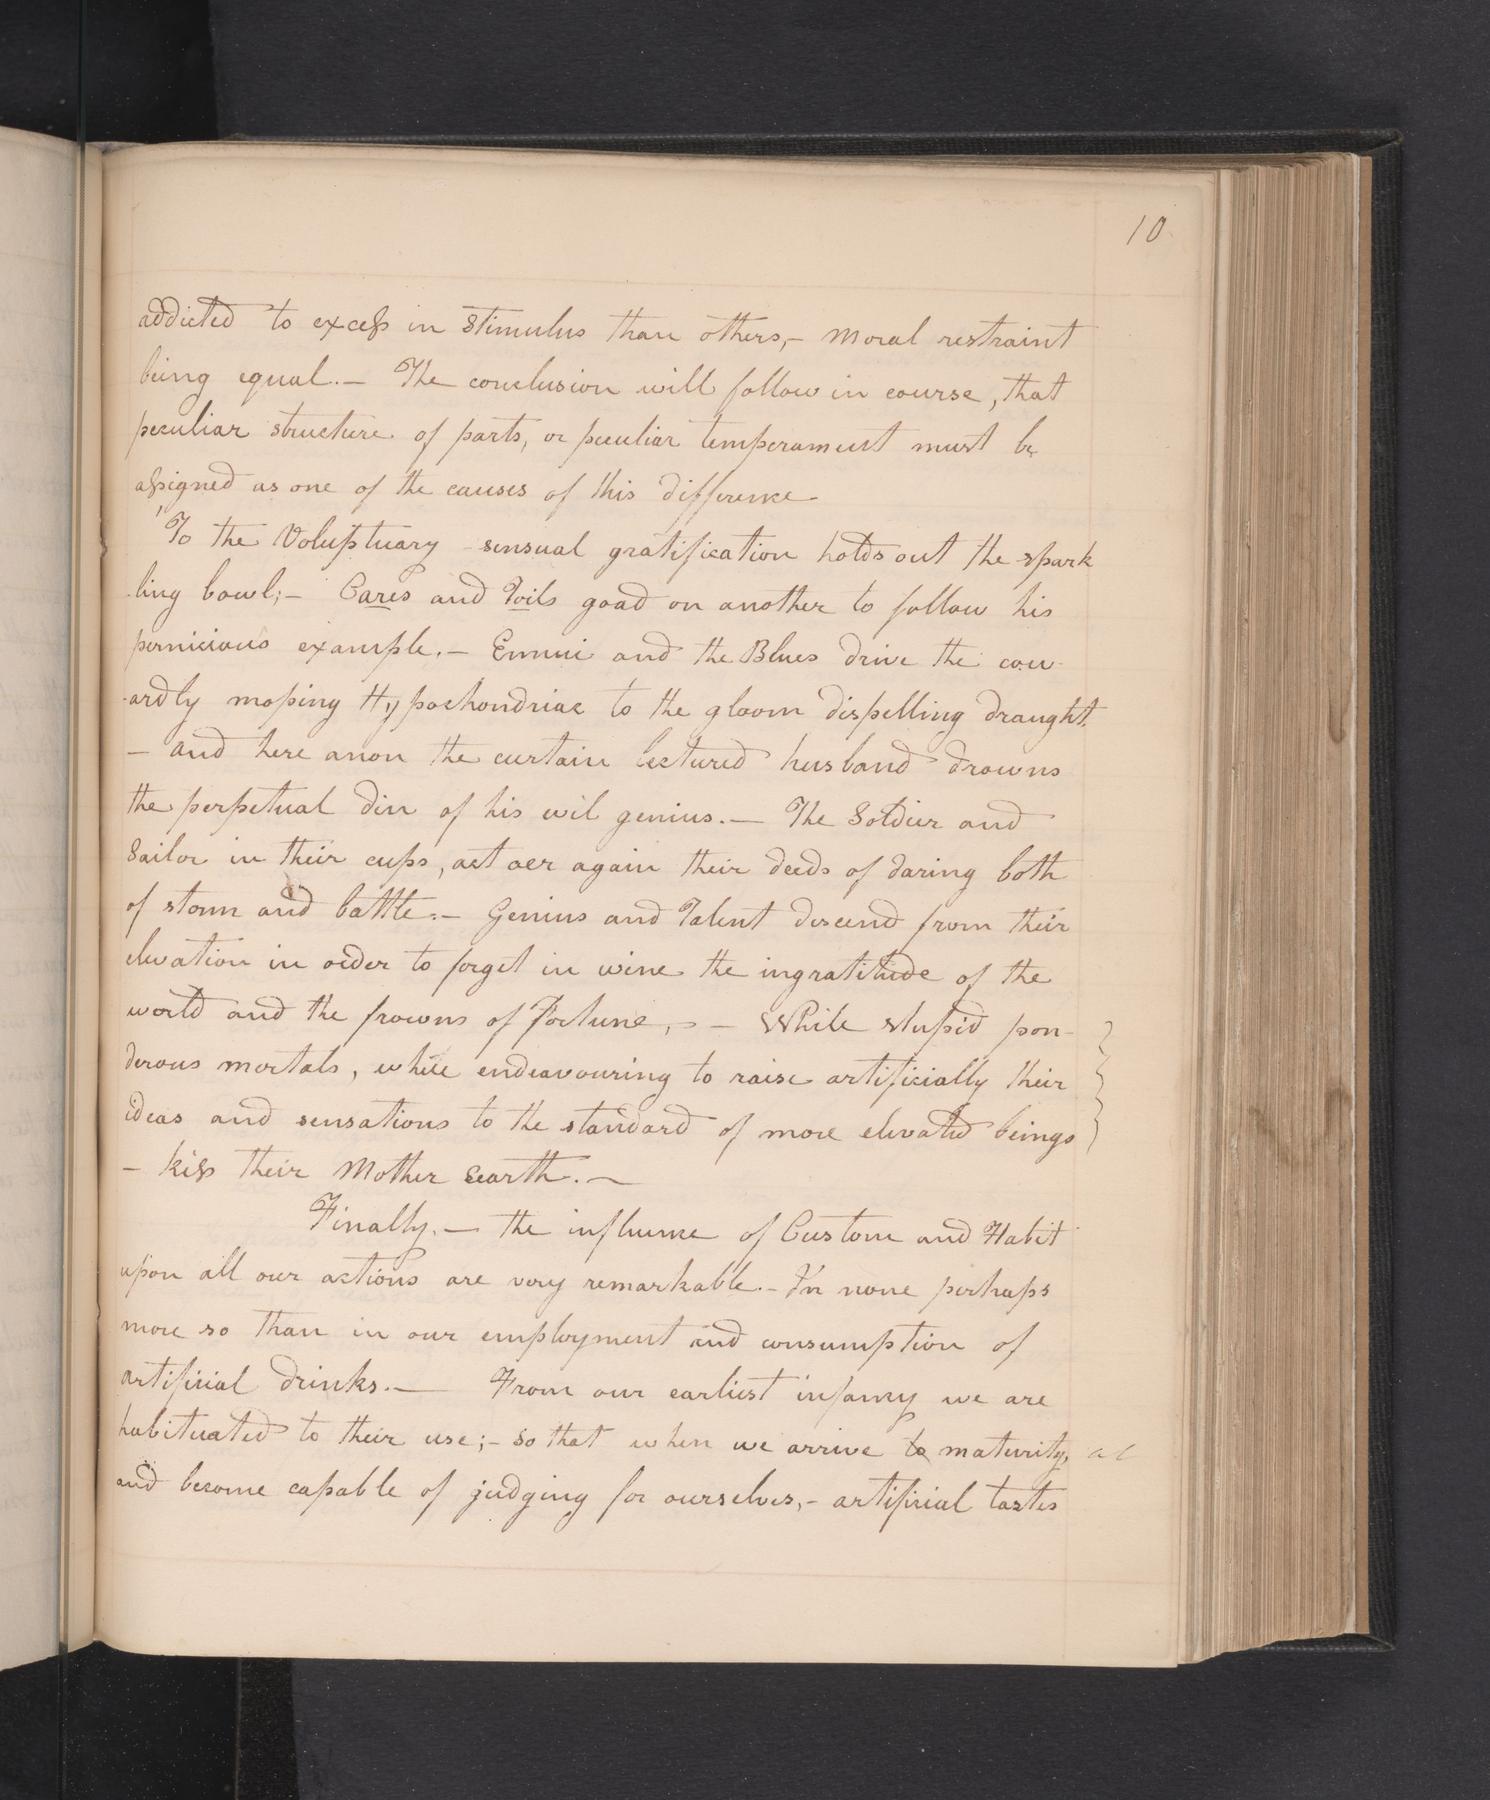 10
addicted to excess in Stimulus than others,— Moral restraint
being equal.— The conclusion will follow in course, that
peculiar structure of parts, or peculiar temperament must be
assigned as one of the causes of this difference
To the Voluptuary sensual gratification holds out the spark
-ling bowl;— Cares and Toils goad on another to follow his
pernicious example.— Ennui and the Blues drive the cow-
-ardly moping Hypochondriac to the gloom dispelling draught.
— and here anon the curtain lectured husband drowns
the perpetual din of his evil genius.— The Soldier and
Sailor in their cups, act oer again their deeds of daring both
of storm and battle.— Genius and Talent descend from their
elevation in order to forget in wine the ingratitude of the
world and the frowns of Fortune,— While stupid pon-
derous mortals, while endeavouring to raise artificially their
ideas and sensations to the standard of more elevated beings
— kiss their Mother Earth.—
Finally.— the influence of Custom and Habit
upon all our actions are very remarkable.— In none perhaps
more so than in our employment and consumption of
artificial drinks.— From our earliest infancy we are
habituated to their use;— So that when we arrive to maturity, at
and become capable of judging for ourselves,— artificial tastes